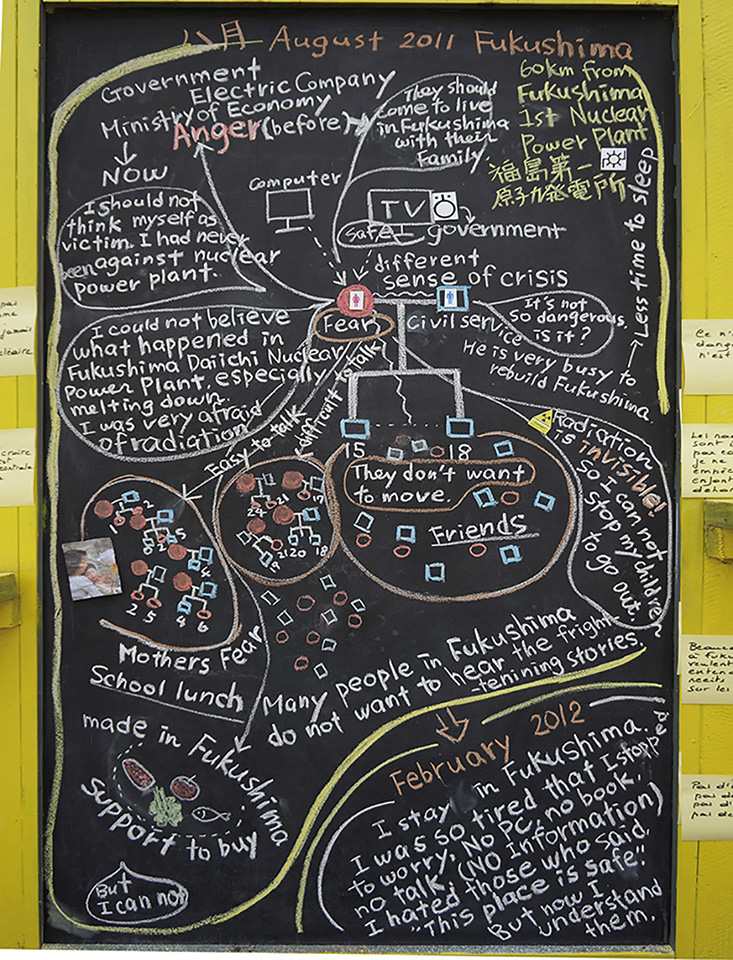 八月 August 2011 Fukushima
Government
Electric Company
Ministry of Economy
Anger (before)
They should
come to live
in Fukushima
with their
family.
60km from
Fukushima
1st Nuclear
Power Plant
福島第一
原子力発電所
Less time to sleep
NOW
I should not
think myself as
victim. I had never
been against nuclear
power plant.
computer
TV
Safe! government
different
sense of crisis
Fear
Civil service
It's not
so dangerous,
is it?
He is very busy to
rebuild Fukushima.
I could not believe
what happened in
Fukushima Daiichi Nuclear
Power Plant, especially
melting down.
I was very afraid
of radiation
Easy to talk
difficult to talk
15
18
They don't want
to move.
Friends
Radiation
is invisible!
So I can not
stop my children
to go out.
1
2
8
2
5
4
2
5
4
6
24
21
17
19
21
20
18
Mothers Fear
School lunch
Many people in Fukushima
do not want to hear the fright
-tenining stories.
made in Fukushima
Support to buy
But
I can not
February 2012
I stay in Fukushima.
I was so tired that I stopped
to worry. No PC, no book,
no talk. (NO Information)
I hated those who said,
"This place is safe".
But now I
understand
them.
pas
jamais
Ce n'
dange
n'est
Les no
sont
pas co
je ne
empic
enfant
deho
Beauco
à Fuku
veulent
enten
récits
sur les
Pas d'
pas d
pas d'
pas de